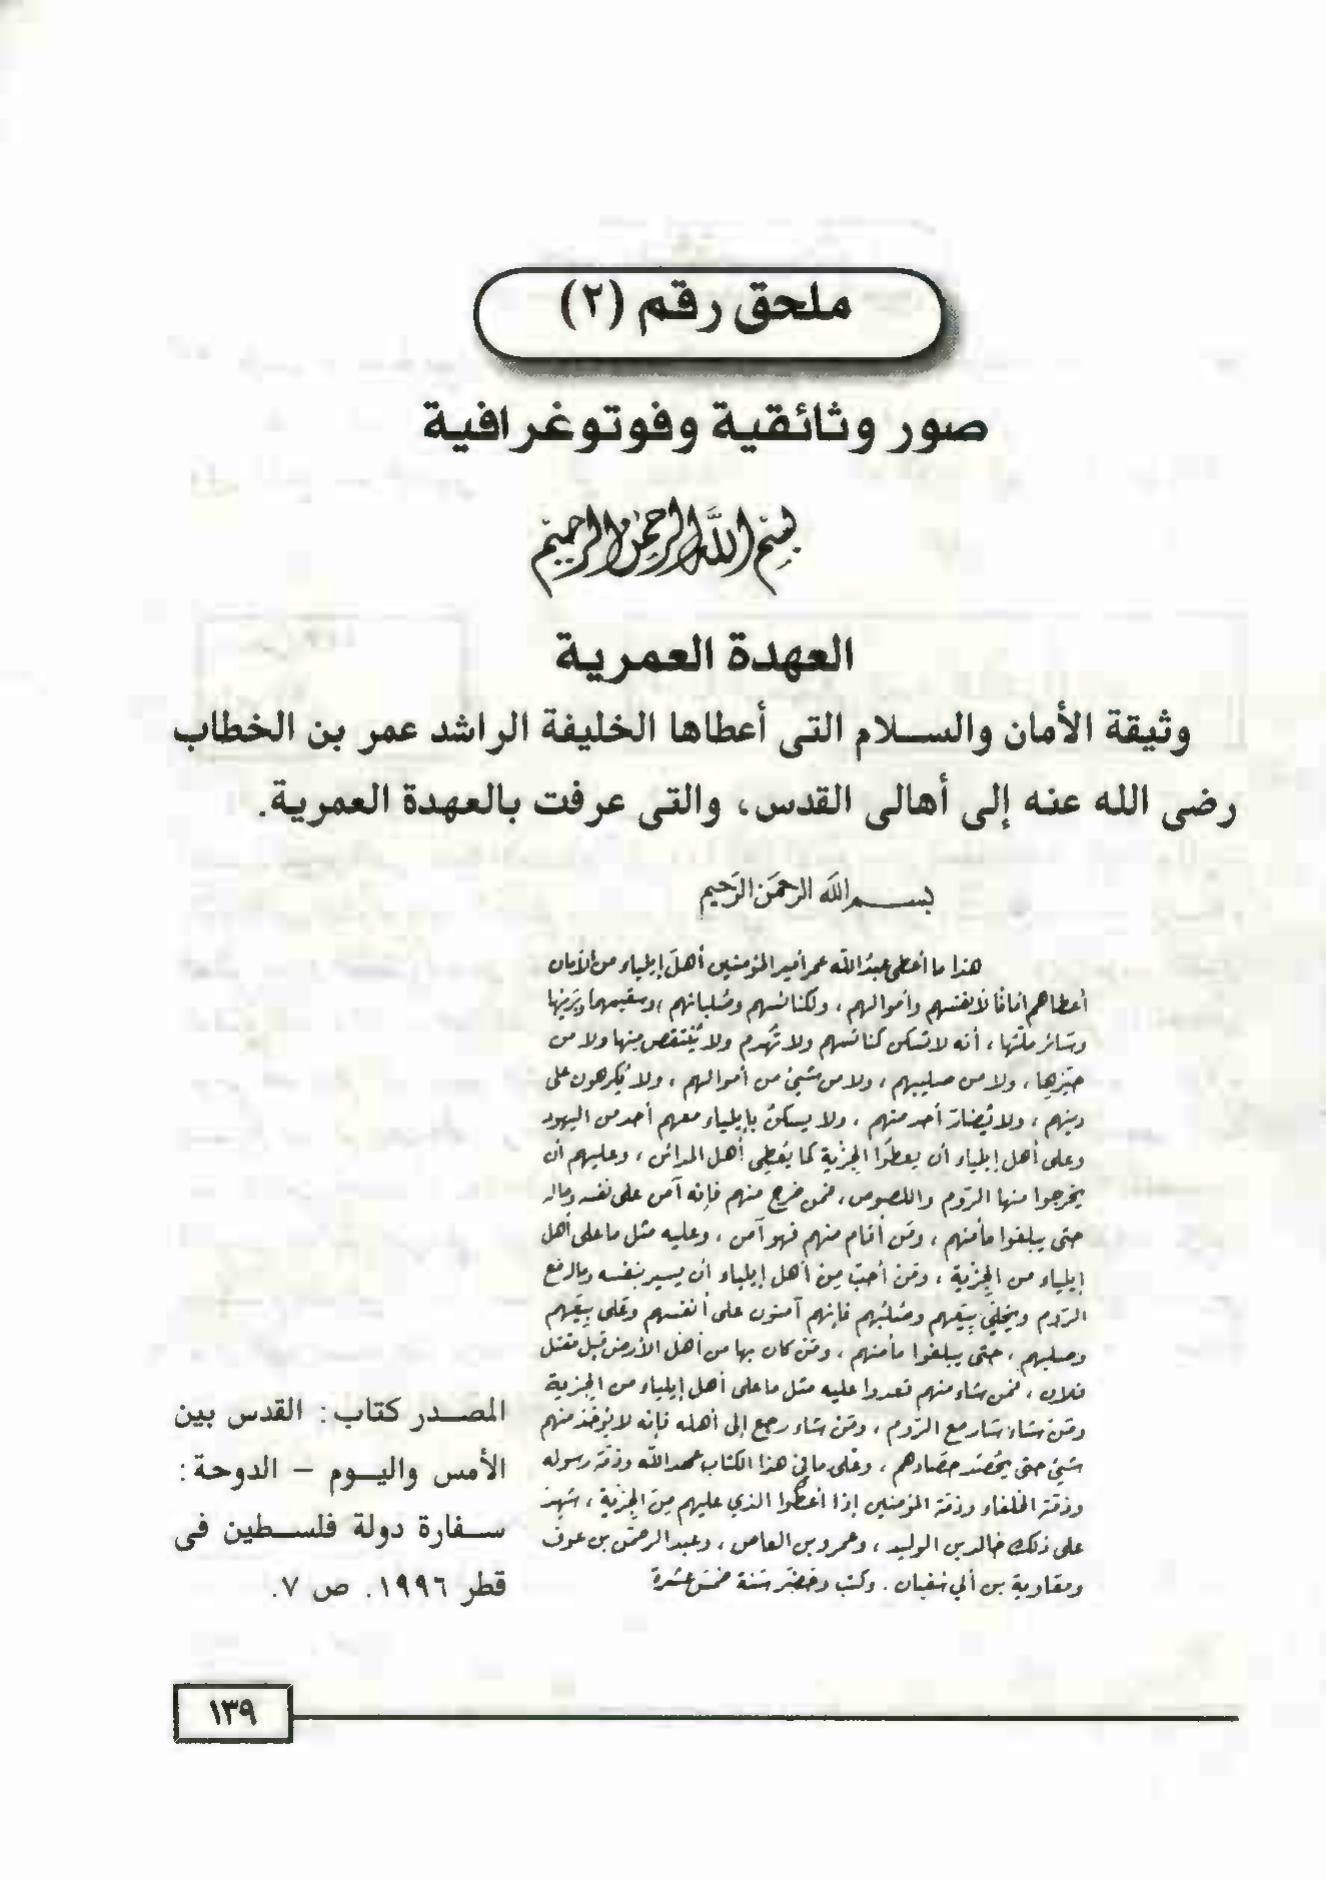 ملحق رقم (٢)
صور وثائقية وفوتوغرافية
بسم الله الرحمن الرحيم
العهدة العمرية
وثيقة الأمان والسلام التى أعطاها الخليفة الراشد عمر بن الخطاب
رضى الله عنه إلى أهالى القدس، والتى عرفت بالعهدة العمرية.
بسم الله الرحمن الرحيم
هذا ما أعطى عبدُ الله عمر أمير المؤمنين أهلَ إيلياء من الأمان
أعطاهم أمانًا لأنفسهم وأموالهم ، ولكنائسهم وصُلبانهم ، وسقيمها وبَريئها
وسَائر ملّتها ، أنه لا تُسكن كنائسهم ولا تُهدم ولا يُنْتَقص مِنها ولا من
حيّزها ، ولا من صليبهم ، ولا من شيئ من أموالهم ، ولا يُكرهون على
دينهم ، ولا يُضارّ أحد منهم ، ولا يسكن بإيلياء معهم أحد من اليهود
وعلى أهل إيلياء أن يعطُوا الجزية كما يُعطِي أهل المدائن ، وعليهم أن
يخرجوا منها الرّوم واللصوص ، فمن خرج منهم فإنه آمن على نفسه وماله
حتى يبلغوا مأمنهم ، ومَن أقام منهم فهو آمن ، وعليه مثل ما على أهل
إيلياء من الجِزية ، ومَن أحبّ مِن أهل إيلياء أن يسير بنفسه وماله مع
الرّوم ويخلّي بِيَعهم وصُلُبهم فإنهم آمنون على أنفسهم وعَلى بِيَعهم
وصلبهم ، حتى يبلغوا مأمنهم ، ومَن كان بها من أهل الأرض قبل مقتل
فلان ، فمن شاء منهم قعدوا عليه مثل ما على أهل إيلياء من الجزية
ومَن شاء سَار مع الرّوم ، ومَن شاء رجع إلى أهله فإنه لا يؤخذ منهم
شيئ حتى يُحْصَد حصَادهم ، وعلى ما في هذا الكتاب عهد الله وذمّة رسوله
وذمّة الخلفاء وذمّة المؤمنين إذا أعطُوا الذي عليهم مِنَ الجزية ، شهِدَ
على ذلك خالد بن الوليد ، وعمرو بن العاص ، وعبد الرحمن بن عوف
ومعاوية بن أبي سُفيان . وكتب وحَضَر سَنة خمسَ عشرة
المصدر كتاب: القدس بين
الأمس واليوم – الدوحة:
سفارة دولة فلسطين فى
قطر ١٩٩٦. ص ٧.
١٣٩